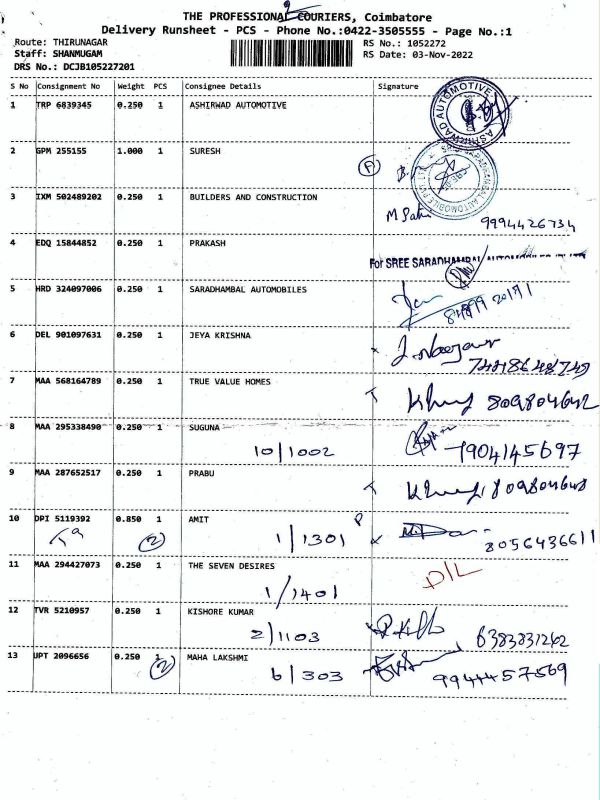 THE PROFESSIONAL COURIERS, Coimbatore
Delivery Runsheet - PCS - Phone No.:0422-3505555 - Page No.:1
Route: THIRUNAGAR RS No.: 1052272
Staff: SHANMUGAM RS Date: 03-Nov-2022
DRS No.: DCJB105227201
S No Consignment No Weight PCS Consignee Details Signature
1 TRP 6839345 0.250 1 ASHIRWAD AUTOMOTIVE
ASHIRWAD AUTOMOTIVE
2 GPM 255155 1.000 1 SURESH
3 IXM 502489202 0.250 1 BUILDERS AND CONSTRUCTION
9994426734
4 EDQ 15844852 0.250 1 PRAKASH
For SREE SARADHAMBAL AUTOMOBILES
5 HRD 324097006 0.250 1 SARADHAMBAL AUTOMOBILES
6 DEL 901097631 0.250 1 JEYA KRISHNA
7 MAA 568164789 0.250 1 TRUE VALUE HOMES
809804642
8 MAA 295338490 0.250 1 SUGUNA
10/1002 7904145697
9 MAA 287652517 0.250 1 PRABU
10 DPI 5119392 0.850 1 AMIT
(2) 1/1301 8056436611
11 MAA 294427073 0.250 1 THE SEVEN DESIRES
1/1401 D/L
12 TVR 5210957 0.250 1 KISHORE KUMAR
2/1103 6383831262
13 UPT 2096656 0.250 1 MAHA LAKSHMI
(2) 6/303 9944457569